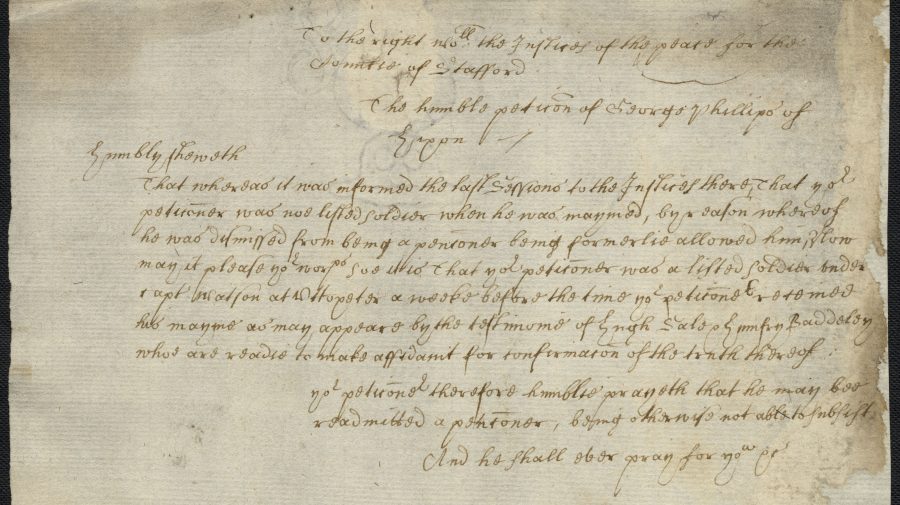 To the right wo:ll the Justices of the peace for the
Countie of Stafford
The humble peticon of George Phillips of
Hixon
Humbly sheweth
That whereas it was informed the last Sessions to the Justices there, That yor
peticoner was noe listed soldier when he was maymed, by reason whereof
he was dismissed from being a penconer being formerlie allowed him, Now
may it please yor worps soe it is That yor peticoner was a listed soldier under
Capt Watson at Uttoxeter a weeke before the time yor peticoner receined
his mayme as may appeare by the testimonie of Hugh Sale Humfry Baddeley
whoe are readie to make affidavit for confirmacon of the truth thereof
yor peticoner therefore humblie prayeth that he may bee
readmitted a penconer, being otherwise not able to subsist
And he shall ever pray for yow &c